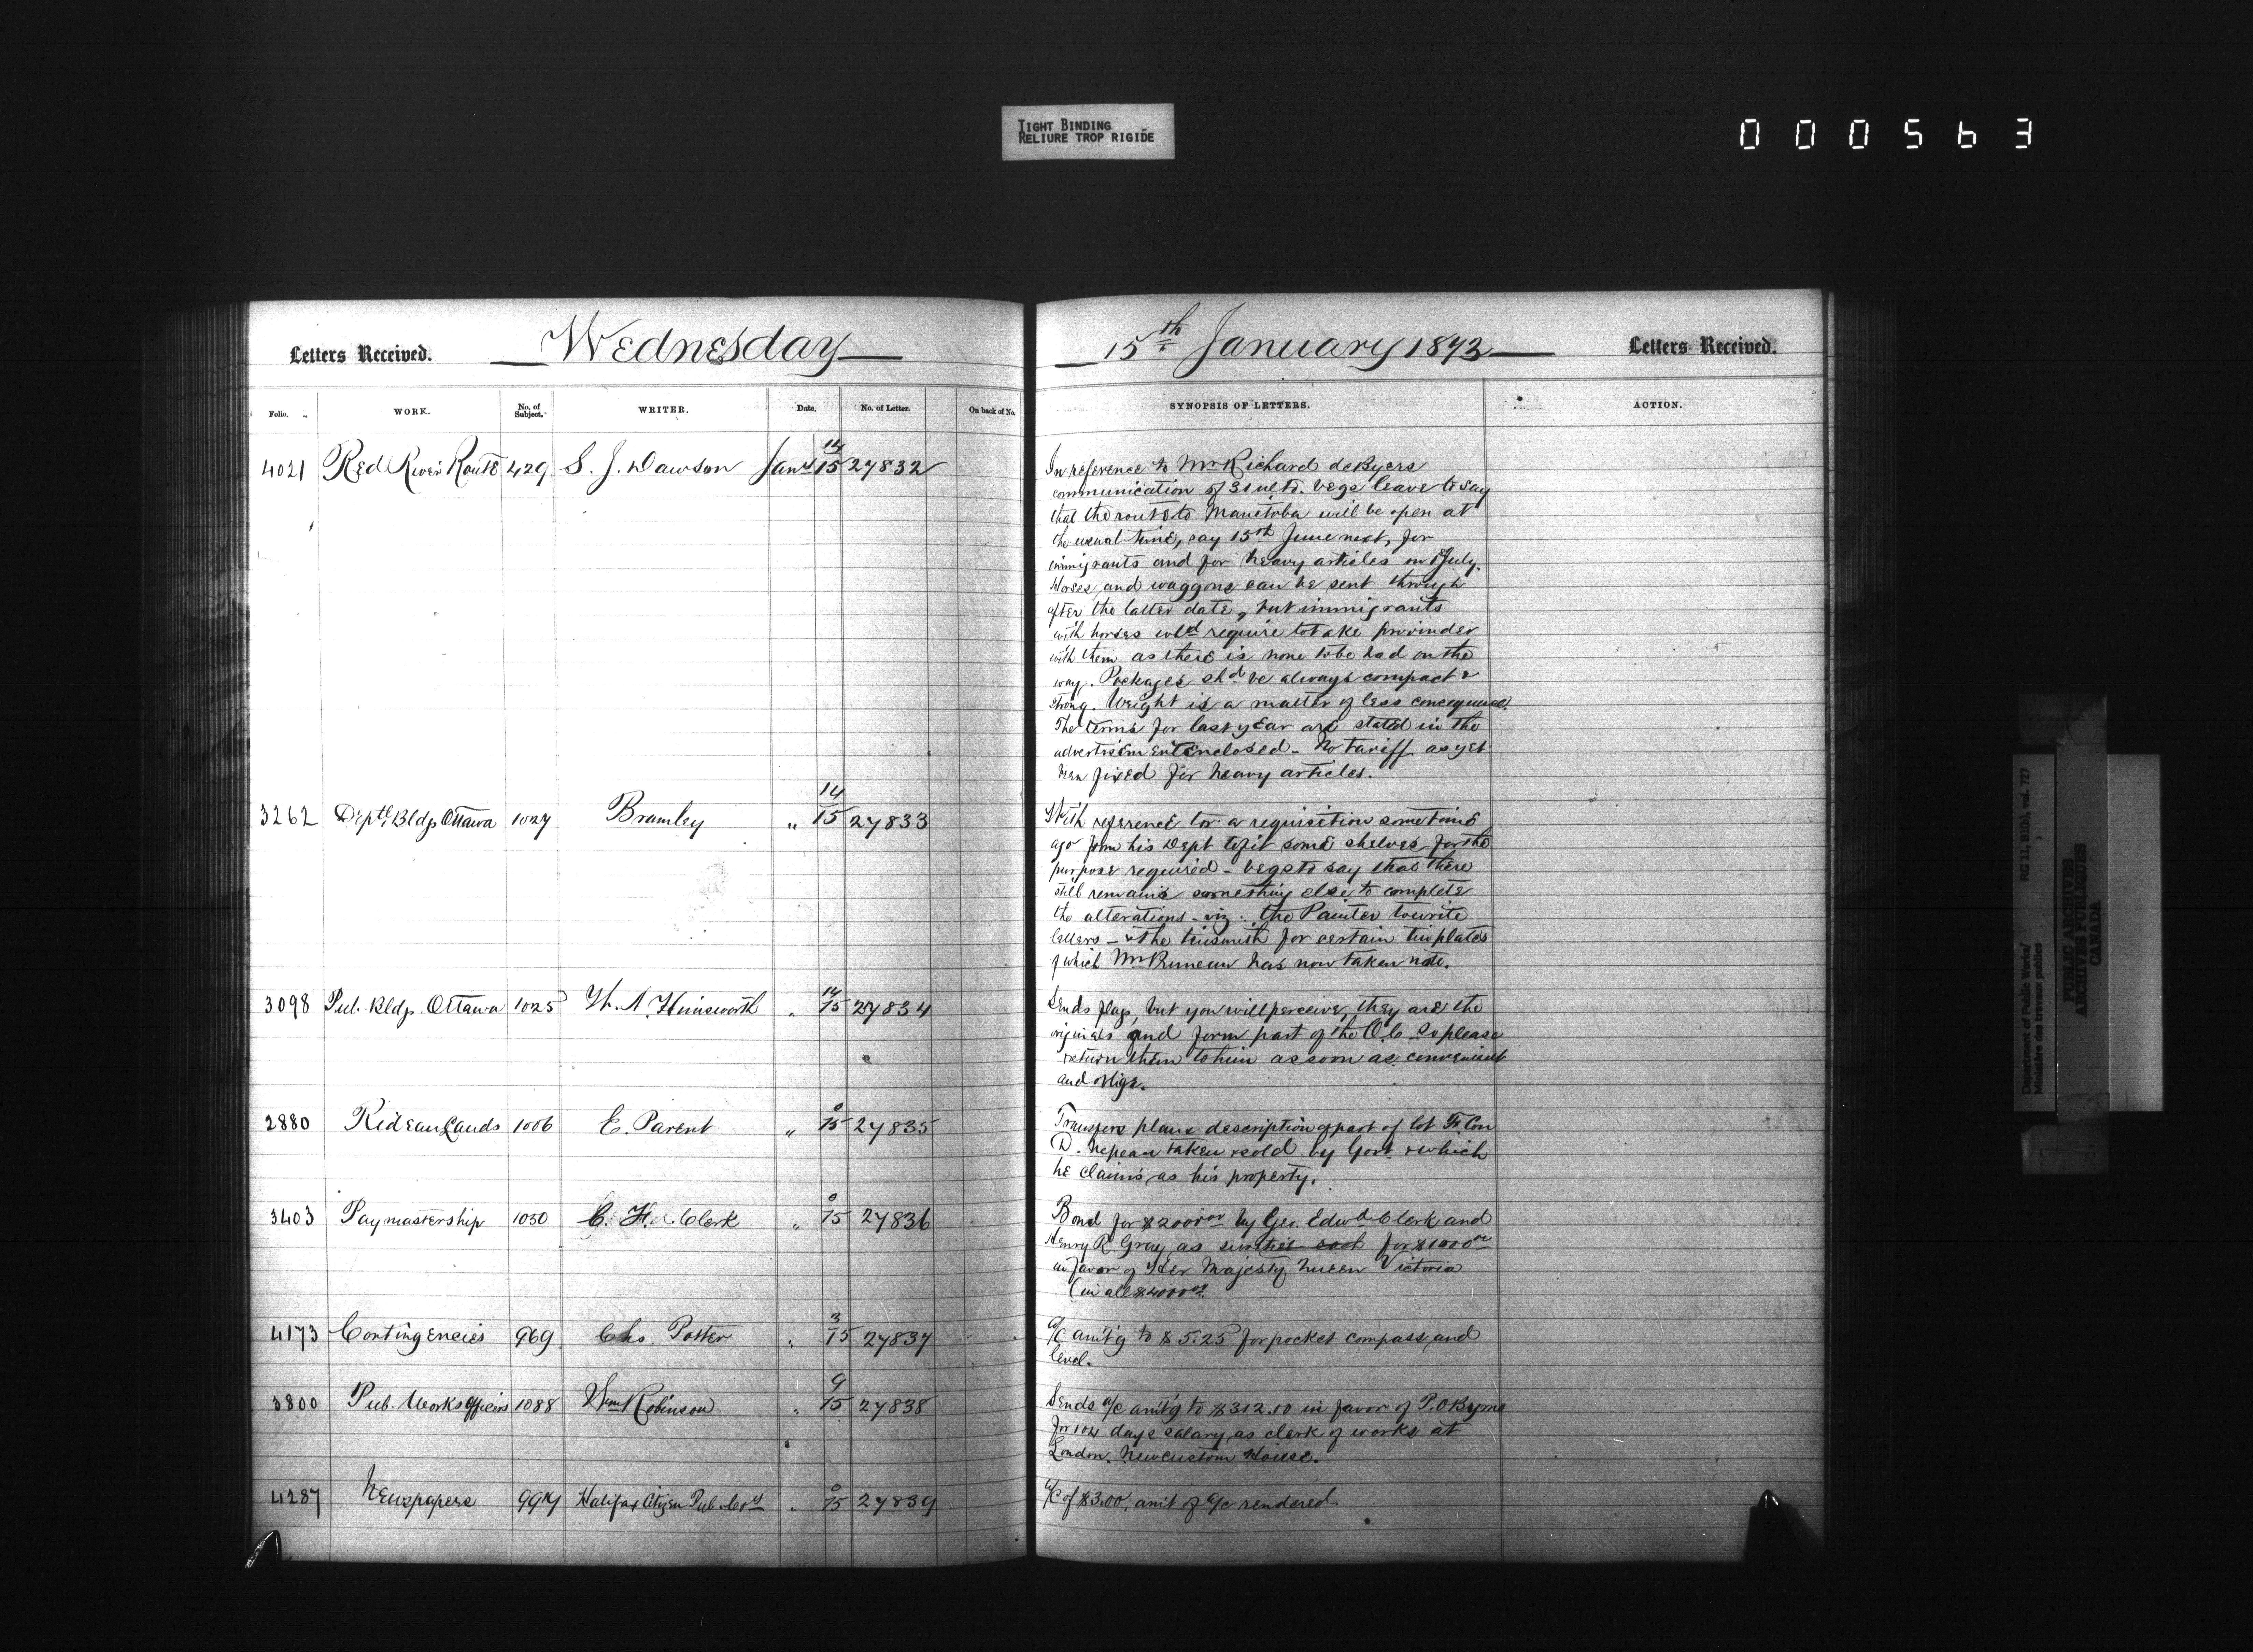 TIGHT BINDING
RELIURE TROP RIGIDE
000563
Letters Received.
Wednesday
Folio. WORK. No. of Subject. WRITER. Date. No. of Letter. On back of No.
4021 Red River Route 429 S. J. Dawson Jany 14/15 27832
3262 Deptl. Bldgs Ottawa 1027 Bramley " 14/15 27833
3098 Pub. Bldgs Ottawa 1025 W. A. Himsworth " 14/15 27834
2880 Rideau Lands 1006 E. Parent " 0/15 27835
3403 Paymastership 1030 C. H. Clerk " 0/15 27836
4173 Contingencies 969 Chs. Potter " 3/15 27837
3800 Pub. Works Officers 1088 Wm Robinson " 9/15 27838
4287 Newspapers 994 Halifax Citizen Pub. Coy " 0/15 27839
15th January 1873
Letters Received.
SYNOPSIS OF LETTERS. ACTION.
In reference to Mr Richard deByers
communication of 31 ulto. begs leave to say
that the route to Manitoba will be open at
the usual time, say 15th June next, for
immigrants and for heavy articles on 1 July.
Horses and waggons can be sent through
after the latter date, but immigrants
with horses wld require to take provinder
with them as there is none to be had on the
way. Packages shd be always compact &
strong. Weight is a matter of less consequence.
The terms for last year are stated in the
advertisement enclosed - No tariff as yet
been fixed for heavy articles.
With reference to a requisition some time
ago from his Dept to fit some shelves for the
purpose required - begs to say that there
still remains something else to complete
the alterations - viz: the Painter to write
letters - & the tinsmith for certain tin plates
of which Mr has now taken note.
Sends flags, but you will perceive, they are the
originals and form part of the O.C. So please
return them to him as soon as convenient
and oblige.
Transfers plans description of part of lot F. Con
D. Nepean taken & sold by Govt. & which
he claims as his property.
Bond for $2000.00 by Geo. Edwd Clerk and
Henry R Gray as sureties each for $1000.00
in favor of Her Majesty Queen Victoria
(in all $4000.00)
a/c amt'g to $5.25 for pocket compass and
level.
Sends a/c amt'g to $312.00 in favor of P. O'Byrne
for 104 days salary as clerk of works at
London. New Custom House.
a/c of $3.00, amt of a/c rendered.
Department of Public Works/
Ministère des travaux publics
RG 11, B1(b), vol. 727
PUBLIC ARCHIVES
ARCHIVES PUBLIQUES
CANADA